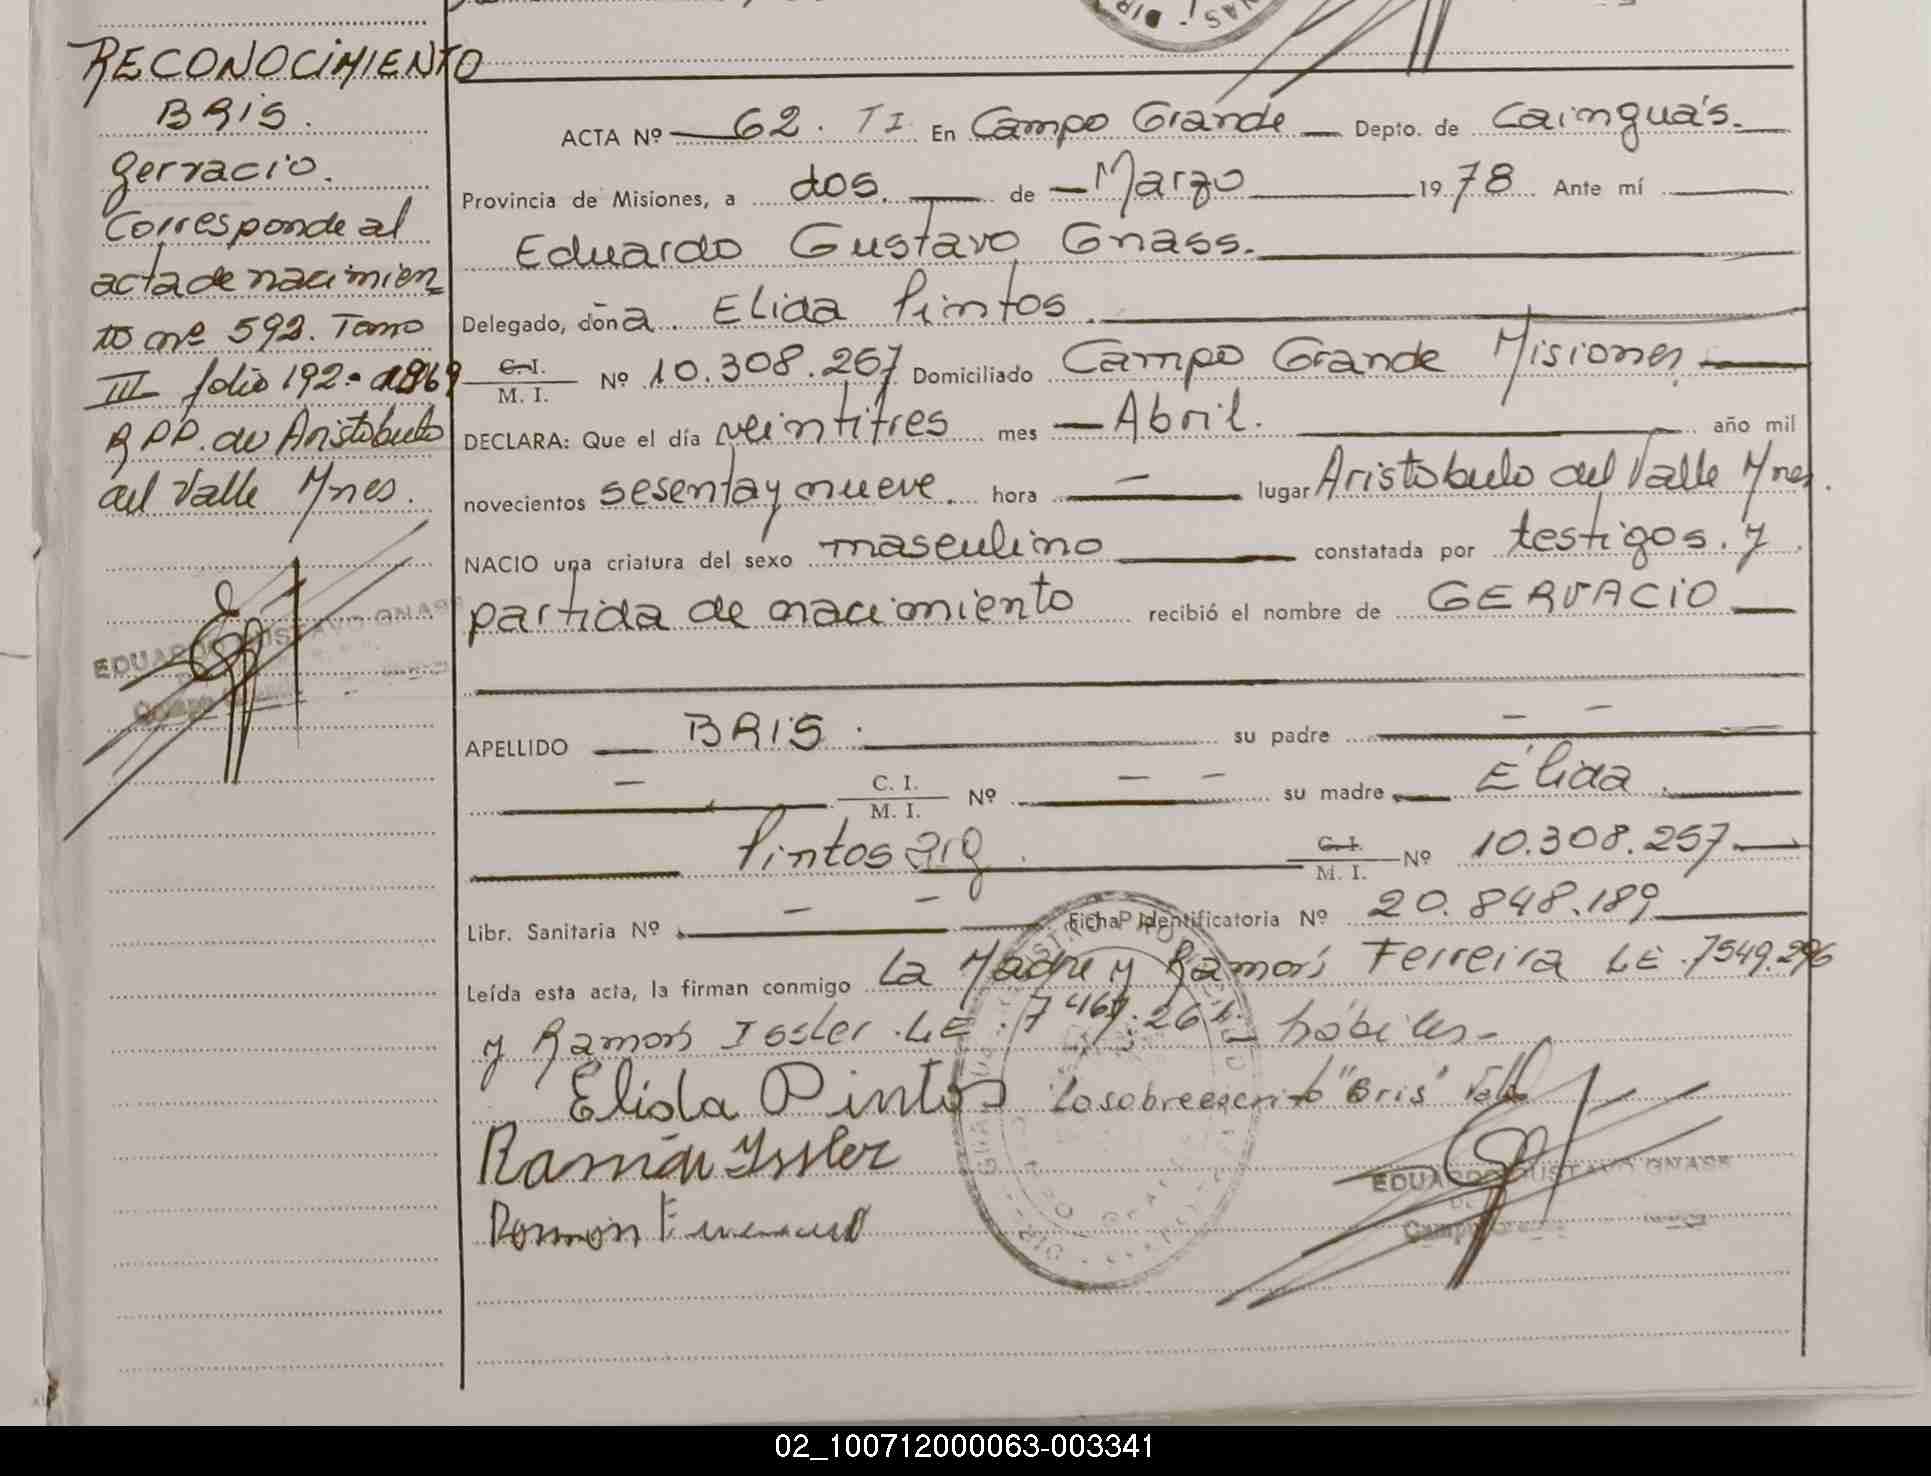 RECONOCIMIENTO
BRIS.
Gervacio.
Corresponde al
acta de nacimien=
to nº 592. Tomo
III folio 192. 1969
R.P.P. de Aristobulo
del Valle Mnes.
EDUARDO GUSTAVO GNASS
Campo Grande
ACTA Nº 62. TI. En Campo Grande Depto. de Cainguás.
Provincia de Misiones, a dos. de Marzo 1978 Ante mí
Eduardo Gustavo Gnass.
Delegado, doña. Elida Pintos
C.I. / M. I. Nº 10.308.257 Domiciliado Campo Grande Misiones
DECLARA: Que el día veintitres mes Abril. año mil
novecientos sesenta y nueve. hora — lugar Aristobulo del Valle Mnes.
NACIO una criatura del sexo masculino constatada por testigos. y
partida de nacimiento recibió el nombre de GERVACIO
APELLIDO BRIS. su padre — —
— C. I. / M. I. Nº — — su madre Élida
Pintos arg. C.I. / M. I. Nº 10.308.257
Libr. Sanitaria Nº — — Ficha Identificatoria Nº 20.848.189
Leída esta acta, la firman conmigo La Madre y Ramón Ferreira LE. 7549.296
y Ramón Issler. LE. 7467.261. hábiles-
Elida Pintos Lo sobreescrito "Bris" Vale
Ramón Issler
Ramon
EDUARDO GUSTAVO GNASS
Campo Grande
02_100712000063-003341